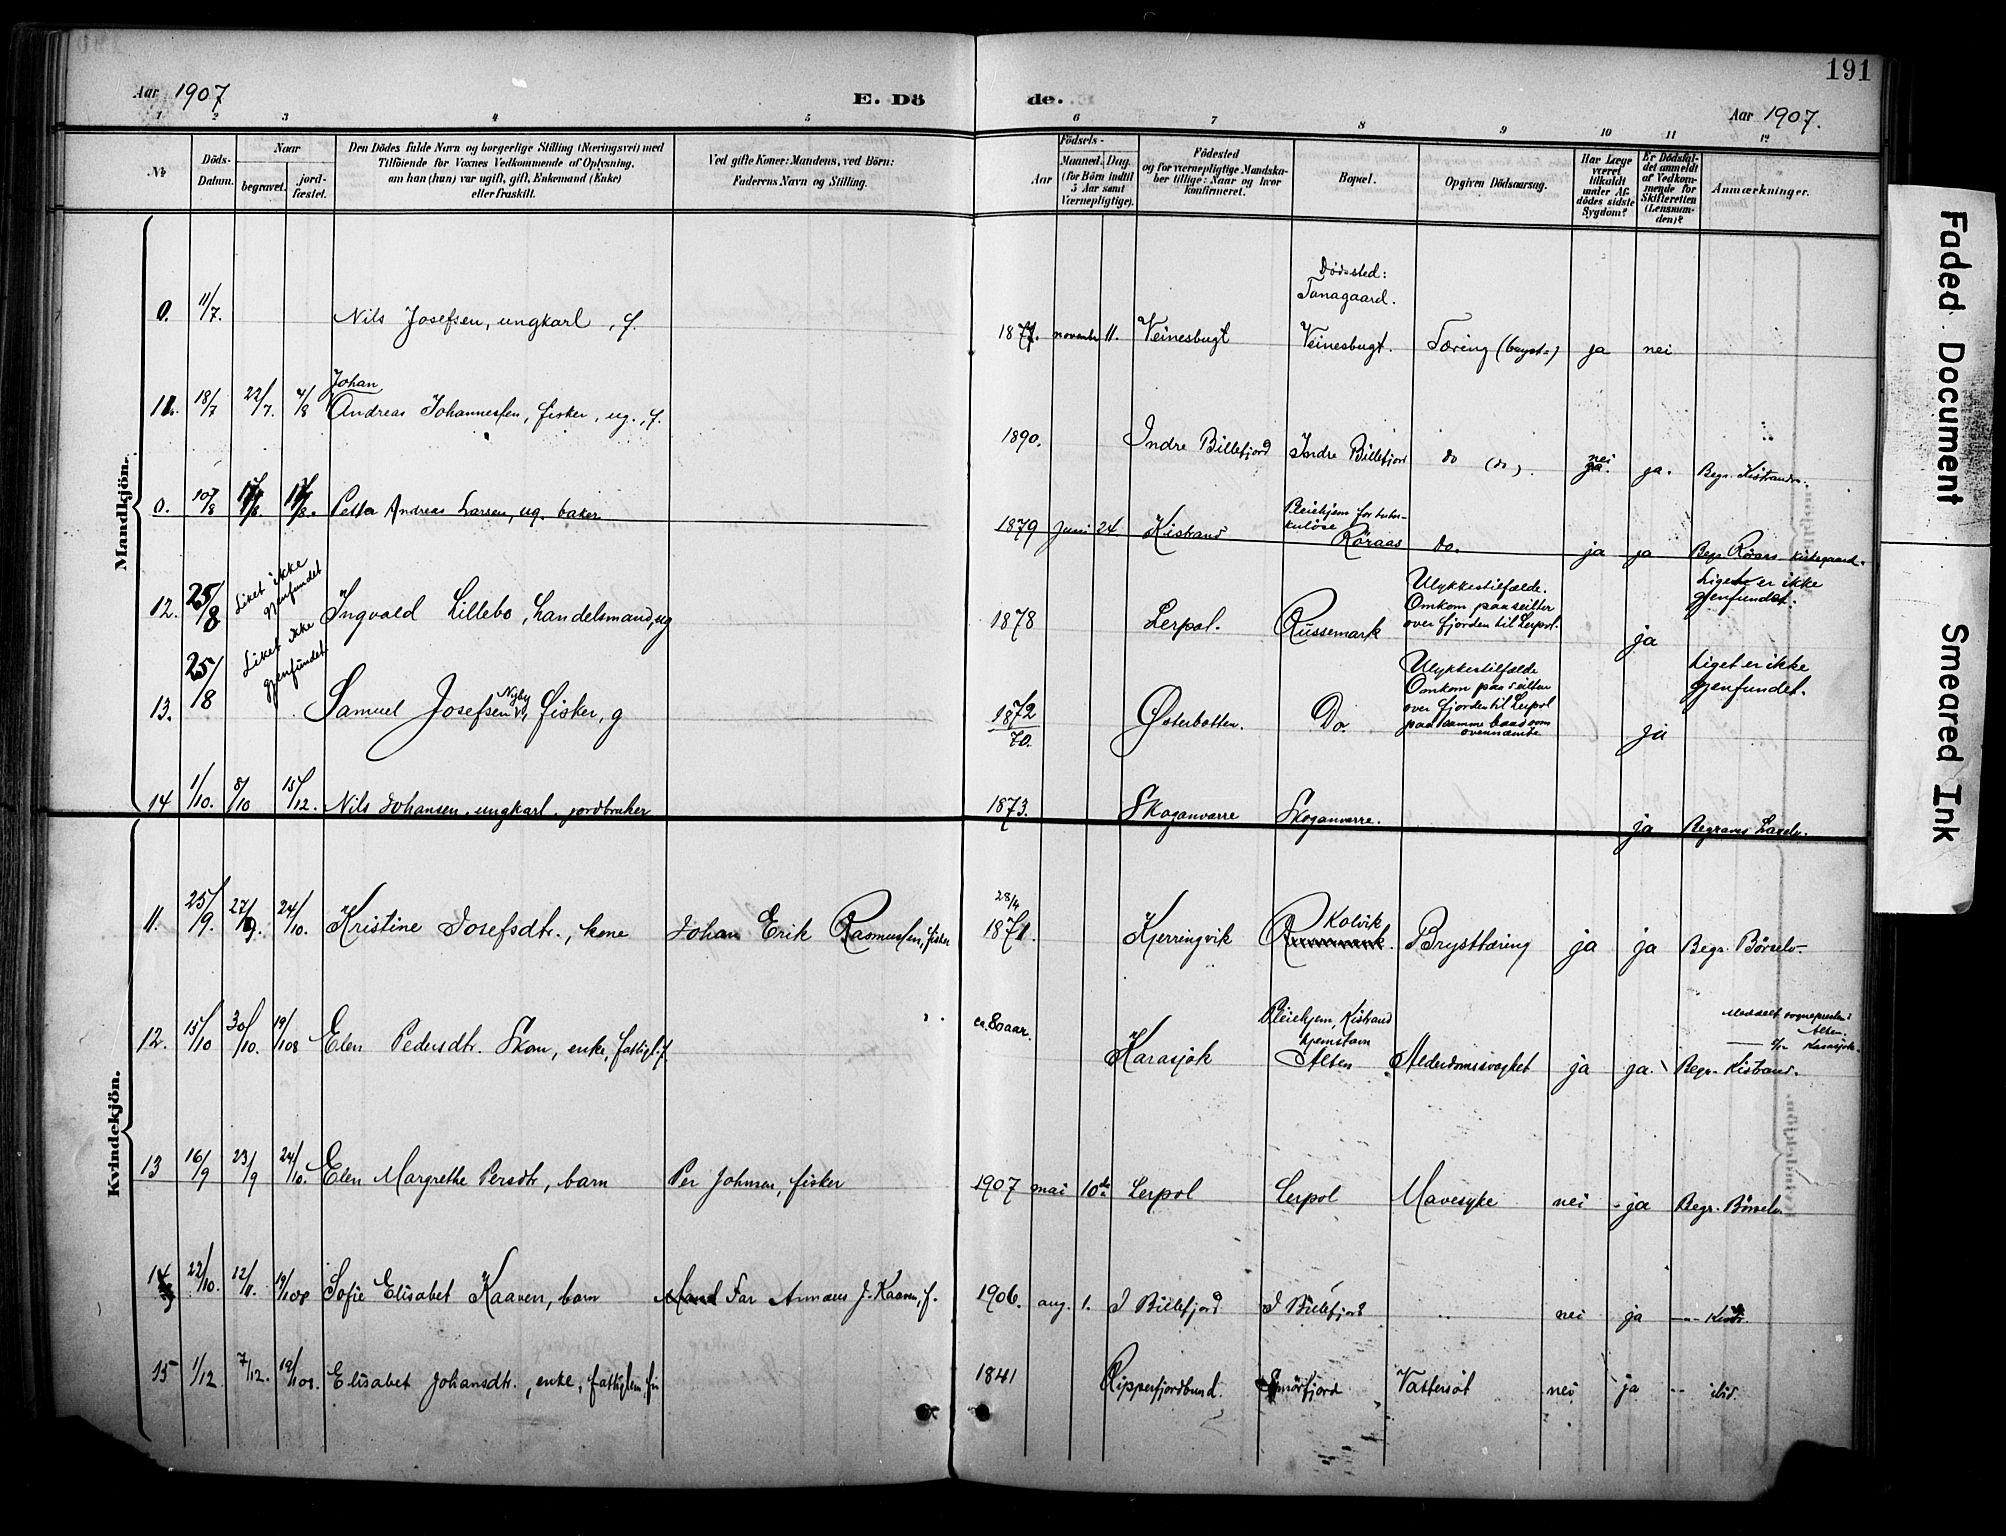 191
Aar 1907
E. Dö
de.
Aar 1907.
1 2 3 4 5 6 7 8 9 10 11 12
No
Döds-
Datum.
Naar
begravet.
jord-
fæstet.
Den Dödes fulde Navn og borgerlige Stilling (Næringsvei) med
Tilföiende for Voxnes Vedkommende af Oplysning,
om han (hun) var ugift, gift, Enkemand (Enke)
eller fraskilt.
Ved gifte Koner: Mandens, ved Börn:
Faderens Navn og Stilling.
Födsels-
Aar
Maaned. Dag.
(for Börn indtil
5 Aar samt
Værnepligtige).
Födested
og for værnepligtige Mandska-
ber tillige: Naar og hvor
konfirmeret.
Bopæl.
Opgiven Dödsaarsag.
Har Læge
været
tilkaldt
under Af-
dödes sidste
Sygdom?
Er Dödsfal-
det anmeldt
af Vedkom-
mende for
Skifteretten
(Lensman-
den)?
Anmærkninger.
Mandkjön.
0. 11/7. Nils Josefsen, ungkarl, f. 1877. novemb 11. Veinesbugt Dødssted: Tanagaard. Veinesbugt. Tæring (bryst-) ja nei
11. 18/7 22/7. 4/8 Johan Andreas Johannessen, fisker, ug., f. 1890. Indre Billefjord Indre Billefjord do (do). nei ja. Begr. Kistrand.
0. 10/8 Petter Andreas Larsen, ug. baker 1879 Juni 24. Kistrand Pleiehjem for tuber-
kuløse Röraas do. ja ja Begr. Röraas kirkegaard.
12. 25/8 Liket ikke gjenfundet Ingvald Lillebo, handelsmand, ug 1878 Lerpol. Russemark Ulykkestilfælde.
Omkom paa seilter
over fjorden til Lerpol. ja Liget er ikke
gjenfundet.
13. 25/8 Liket ikke gjenfundet Samuel Josefsen Nyby fisker, g 1872/70. Østerbotten. Do. Ulykkestilfælde
Omkom paa seilter
over fjorden til Lerpol
paa samme baad som
ovennævnte ja Liget er ikke
gjenfundet.
14 1/10. 8/10 15/12. Nils Johansen, ungkarl, jordbruker 1873. Skoganvarre Skoganvarre. ja Begraves Laxelv.
Kvindekjön.
11. 25/9. 27/9. 24/10. Kristine Josefsdtr., kone Johan Erik Rasmussen, fisker 28/4 1871. Kjerringvik Kolvik Brysttæring ja ja Begr. Börselv
12. 15/10 30/10. 19/108 Elen Pedersdtr. Skum, enke, fattigl. f ca. 80 aar. Karasjok Pleiehjem, Kistrand
hjemstavn
Alten Alderdomssvaghet ja ja. Begr. Kistrand. Meddelt sogneprest i
Alten.
Karasjok.
13 16/9 23/9 24/10. Elen Margrethe Persdtr, barn Per Johnsen, fisker 1907 mai 10de Lerpol Lerpol Mavesyke nei ja Begr. Börselv
14 22/10. 12/11. 19/108 Sofie Elisabet Kaaven, barn Mand Far Amneus J. Kaaven, f. 1906. aug. 1. I Billefjord I Billefjord nei ja Kistr.
15 1/12. 7/12. 19/108. Elisabet Johansdtr., enke, fattiglem, fin 1841 Ripperfjordbund. Smörfjord Vattersöt nei ja ibid.
Faded Document
Smeared Ink